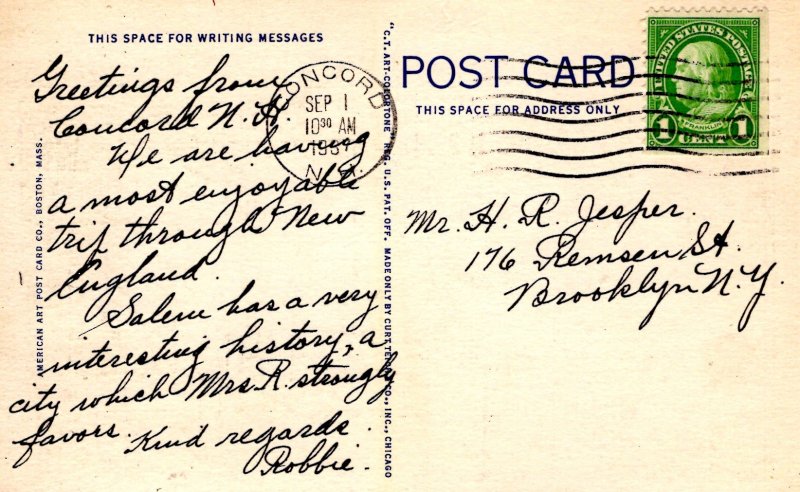 THIS SPACE FOR WRITING MESSAGES
Greetings from
Concord N.H.
We are having
a most enjoyable
trip through New
England.
Salem has a very
interesting history, a
city which Mrs. R. strongly
favors. Kind regards.
Robbie.
AMERICAN ART POST CARD CO., BOSTON, MASS.
"C.T. ART-COLORTONE" REG. U.S. PAT. OFF. MADE ONLY BY CURT TEICH & CO., INC., CHICAGO
CONCORD
SEP 1
10 30 AM
193
N.H.
POST CARD
THIS SPACE FOR ADDRESS ONLY
UNITED STATES POSTAGE
FRANKLIN
1 CENT 1
Mr. H. R. Jesper.
176 Remsen St.
Brooklyn N.Y.